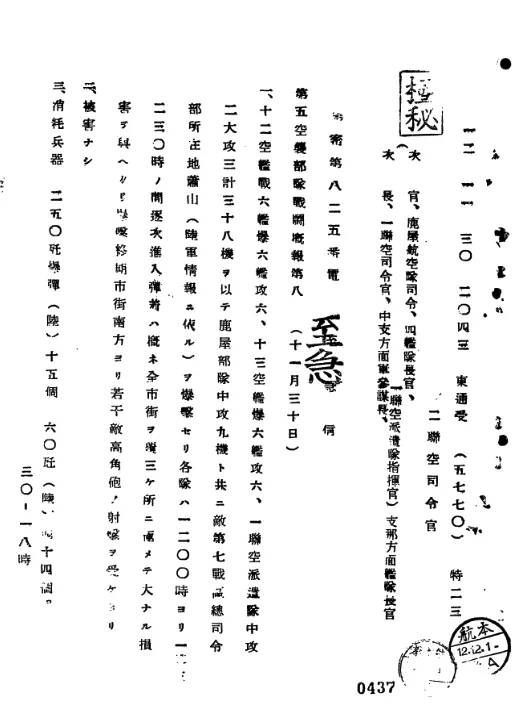 一二 一一 三〇 二〇四三 東通受 (五七七〇) 特二三
二聯空司令官
極秘
次官、鹿屋航空隊司令、四艦隊長官、
(一聯空派遣隊指揮官)支那方面艦隊長官
次長、一聯空司令官、中支方面軍參謀長、
密第八二五番電
至急 信
第五空襲部隊戰鬪概報第八 (十一月三十日)
一、十二空艦戰六艦爆六艦攻六、十三空艦爆六艦攻六、一聯空派遣隊中攻
二大攻三計三十八機ヲ以テ鹿屋部隊中攻九機ト共ニ敵第七戰區總司令
部所在地蕭山(陸軍情報ニ依ル)ヲ爆擊セリ各隊ハ一二〇〇時ヨリ一
二三〇時ノ間逐次進入彈着ハ概ネ全市街ヲ覆三ケ所ニ メテ大ナル損
害ヲ與ヘ 爆擊終期市街南方ヨリ若干敵高角砲ノ射擊ヲ受ケタリ
二、被害ナシ
三、消耗兵器 二五〇瓩爆彈(陸)十五個 六〇瓩(陸) 十四個
三〇-一八時
航本
12.12.1
0437